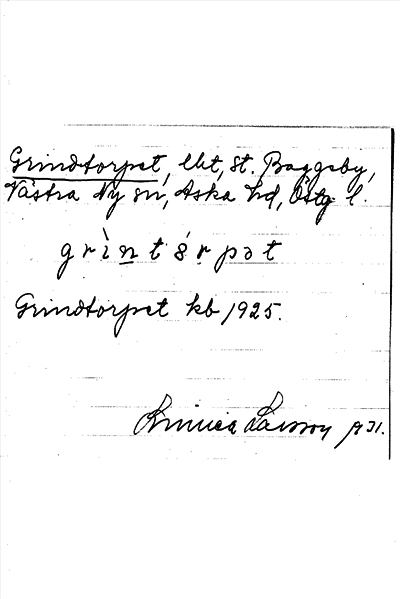 Grindtorpet, lht, St. Baggeby,
Västra Ny sn, Aska hd, Östg l.
grìntórpət
Grindtorpet kb 1925.
Larsson 1931.